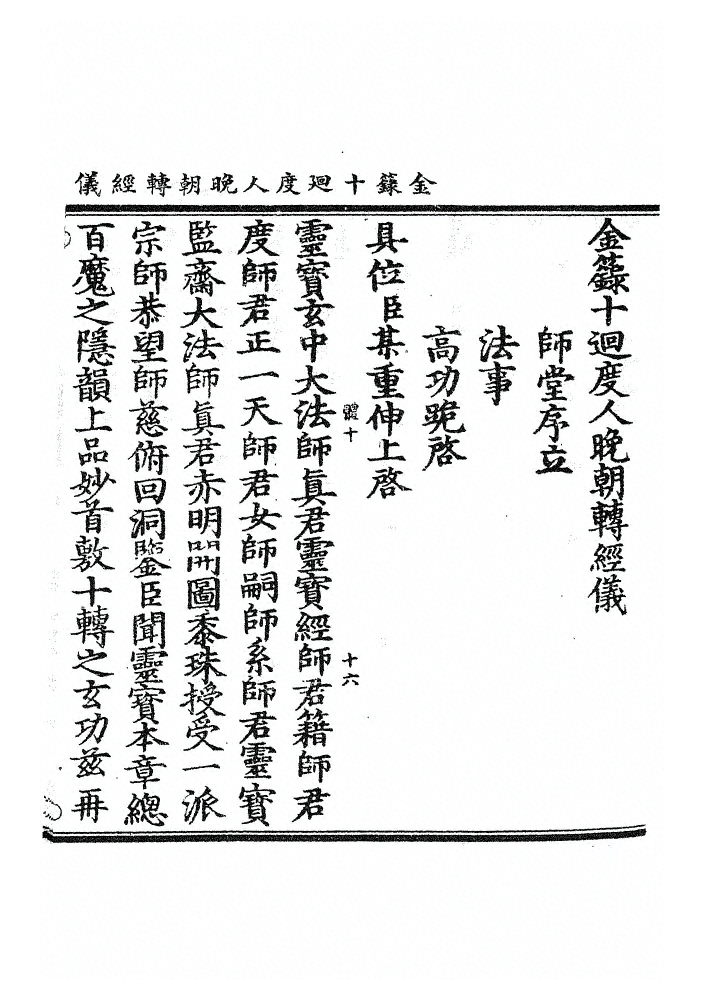 金籙十迴度人晚朝轉經儀
金籙十迴度人晚朝轉經儀
師堂序立
法事
高功跪啓
具位臣某重伸上啓
體十
十六
靈寶玄中大法師眞君靈寶經師君籍師君
度師君正一天師君女師嗣師系師君靈寶
監齋大法師眞君赤明開圖黍珠授受一派
宗師恭望師慈俯回洞鑒臣聞靈寶本章總
百魔之隱韻上品妙首敷十轉之玄功兹再